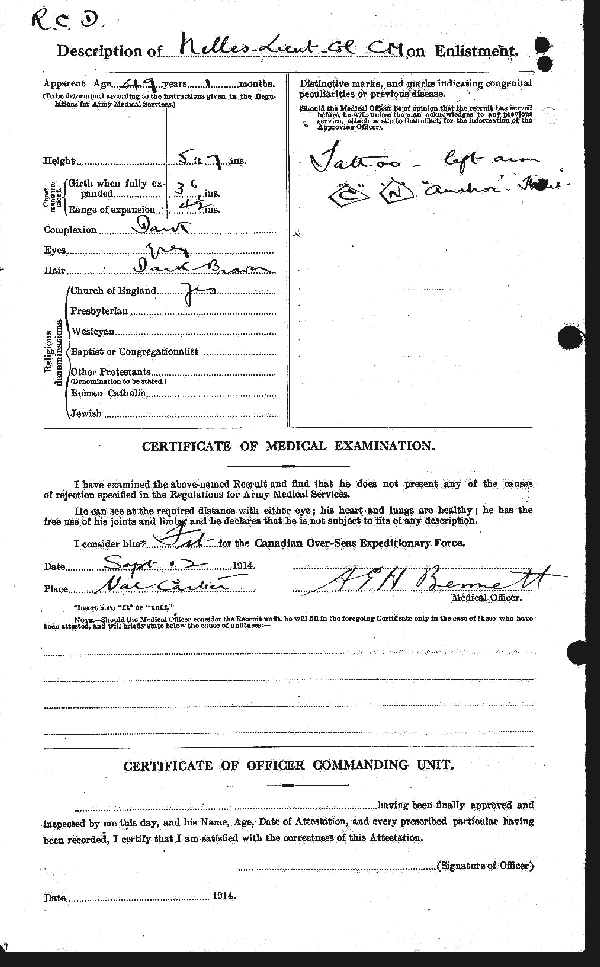 R.C.D.
Description of Nelles Lieut Col C M on Enlistment.
Apparent Age 49 years 1 months.
(To be determined according to the instructions given in the Regulations for Army Medical Services.)
Height 5 ft 7 ins.
Chest measurement.
Girth when fully expanded 36 ins.
Range of expansion ins.
Complexion Dark
Eyes Grey
Hair Dark Brown
Religious denominations
Church of England Yes
Presbyterian
Wesleyan
Baptist or Congregationalist
Other Protestants
(Denomination to be stated.)
Roman Catholic
Jewish
Distinctive marks, and marks indicating congenital
peculiarities or previous disease.
(Should the Medical Officer be of opinion that the recruit has served
before, he will, unless the man acknowledges to any previous
service, attach a slip to that effect, for the information of the
Approving Officer.)
Tattoo - left arm
C N "Anchor"
CERTIFICATE OF MEDICAL EXAMINATION.
I have examined the above-named Recruit and find that he does not present any of the causes
of rejection specified in the Regulations for Army Medical Services.
He can see at the required distance with either eye; his heart and lungs are healthy; he has the
free use of his joints and limbs, and he declares that he is not subject to fits of any description.
I consider him* Fit for the Canadian Over-Seas Expeditionary Force.
Date Sept 12 1914.
Place Val Cartier
A E H Bennett
Medical Officer.
*Insert here "fit" or "unfit."
NOTE.—Should the Medical Officer consider the Recruit unfit, he will fill in the foregoing Certificate only in the case of those who have
been attested, and will briefly state below the cause of unfitness:—
CERTIFICATE OF OFFICER COMMANDING UNIT.
having been finally approved and
inspected by me this day, and his Name, Age, Date of Attestation, and every prescribed particular having
been recorded, I certify that I am satisfied with the correctness of this Attestation.
(Signature of Officer)
Date 1914.